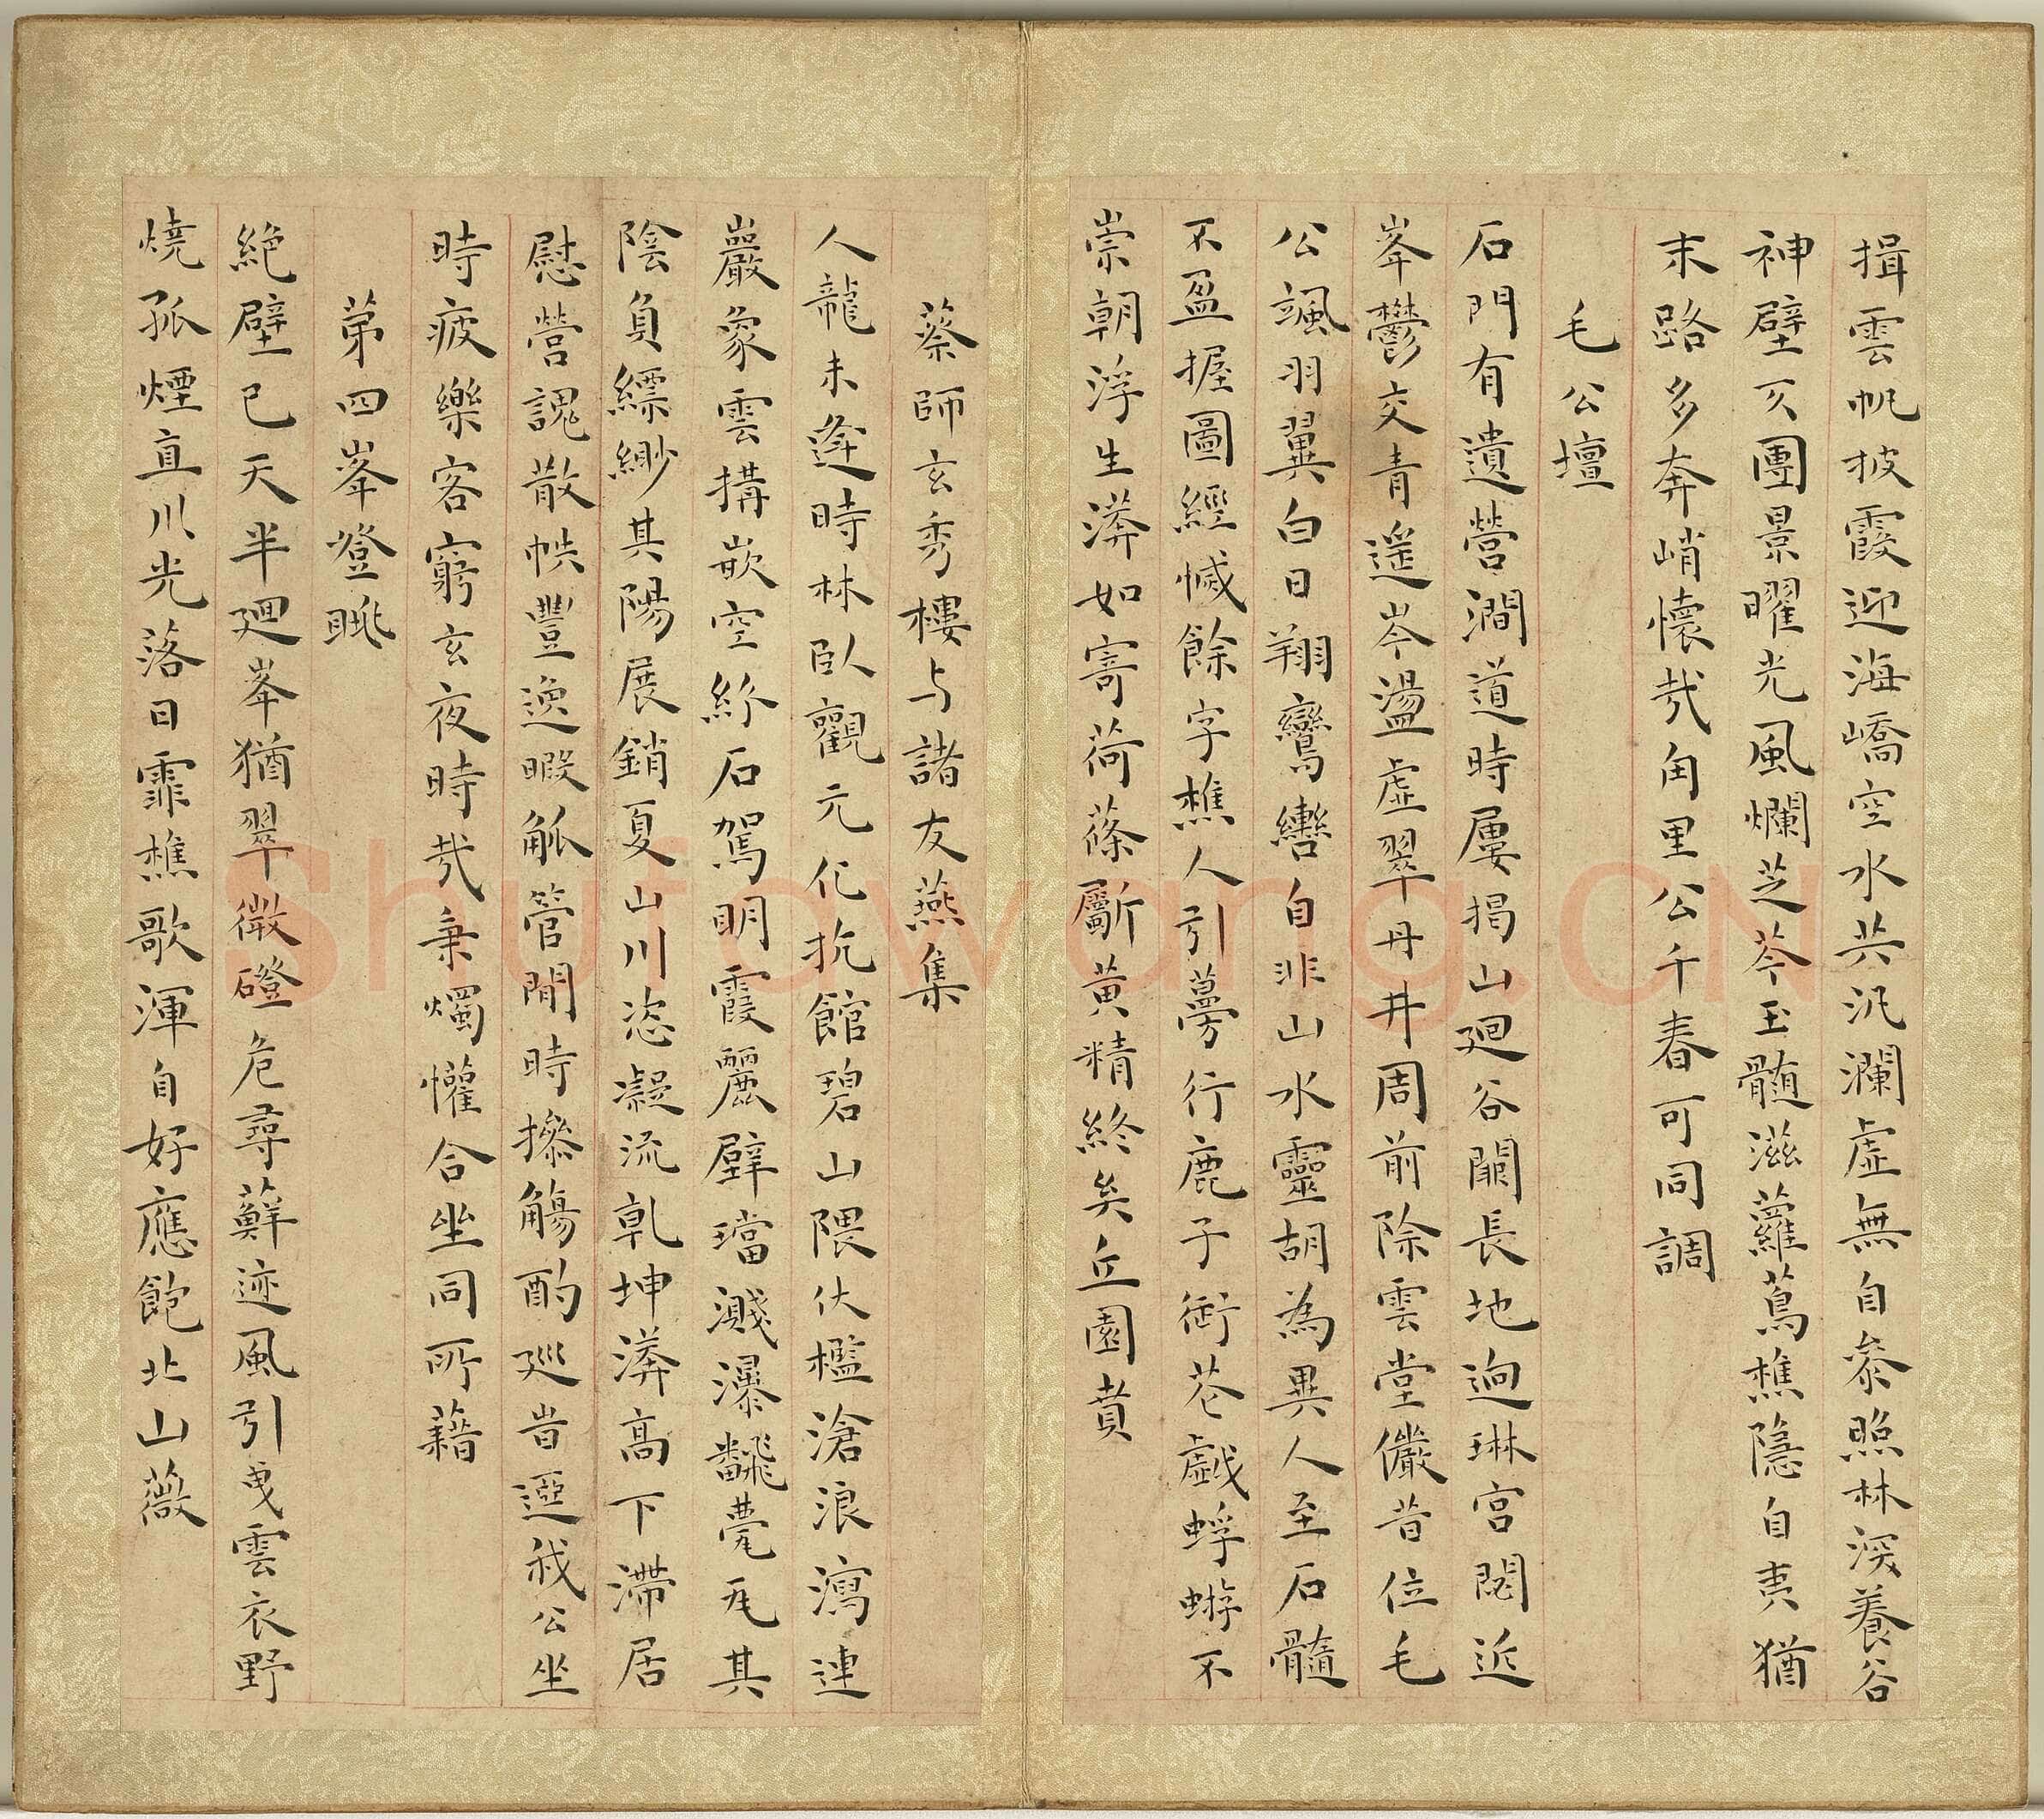 揖雲帆披霞迎海嶠空水共汎瀾虛無自叅照林深養谷
神壁仄團景曜光風爛芝芩玉髓滋蘿蔦樵隱自夷猶
末路多奔峭懷哉甪里公千春可同調
毛公壇
石門有遺營澗道時屢揭山廻谷闢長地迥琳宮閟近
峯鬱交青遥岑盪虛翠丹井周前除雲堂儼昔位毛
公颯羽翼白日翔鸞轡自非山水靈胡為異人至石髓
不盈握圖經慽餘字樵人引蔓行鹿子銜花戲蜉蝣不
崇朝浮生漭如寄荷蓧斸黃精終矣丘園賁
蔡師玄秀樓与諸友燕集
人龍未逢時林臥觀元化抗館碧山隈伏檻滄浪瀉連
巖象雲搆嵌空紾石駕明霞麗壁璫濺瀑飜甍瓦其
陰負縹緲其陽展銷夏山川恣凝流乾坤漭高下滯居
慰營䰟散帙豐逸暇觚管閒時摻觴酌巡昔迓我公坐
時疲樂客窮玄夜時哉秉燭懽合坐同所藉
苐四峯登眺
絶壁已天半廻峯猶翠微磴危尋蘚迹風引曳雲衣野
燒孤煙直川光落日霏樵歌渾自好應飽北山薇
Shufawang.CN